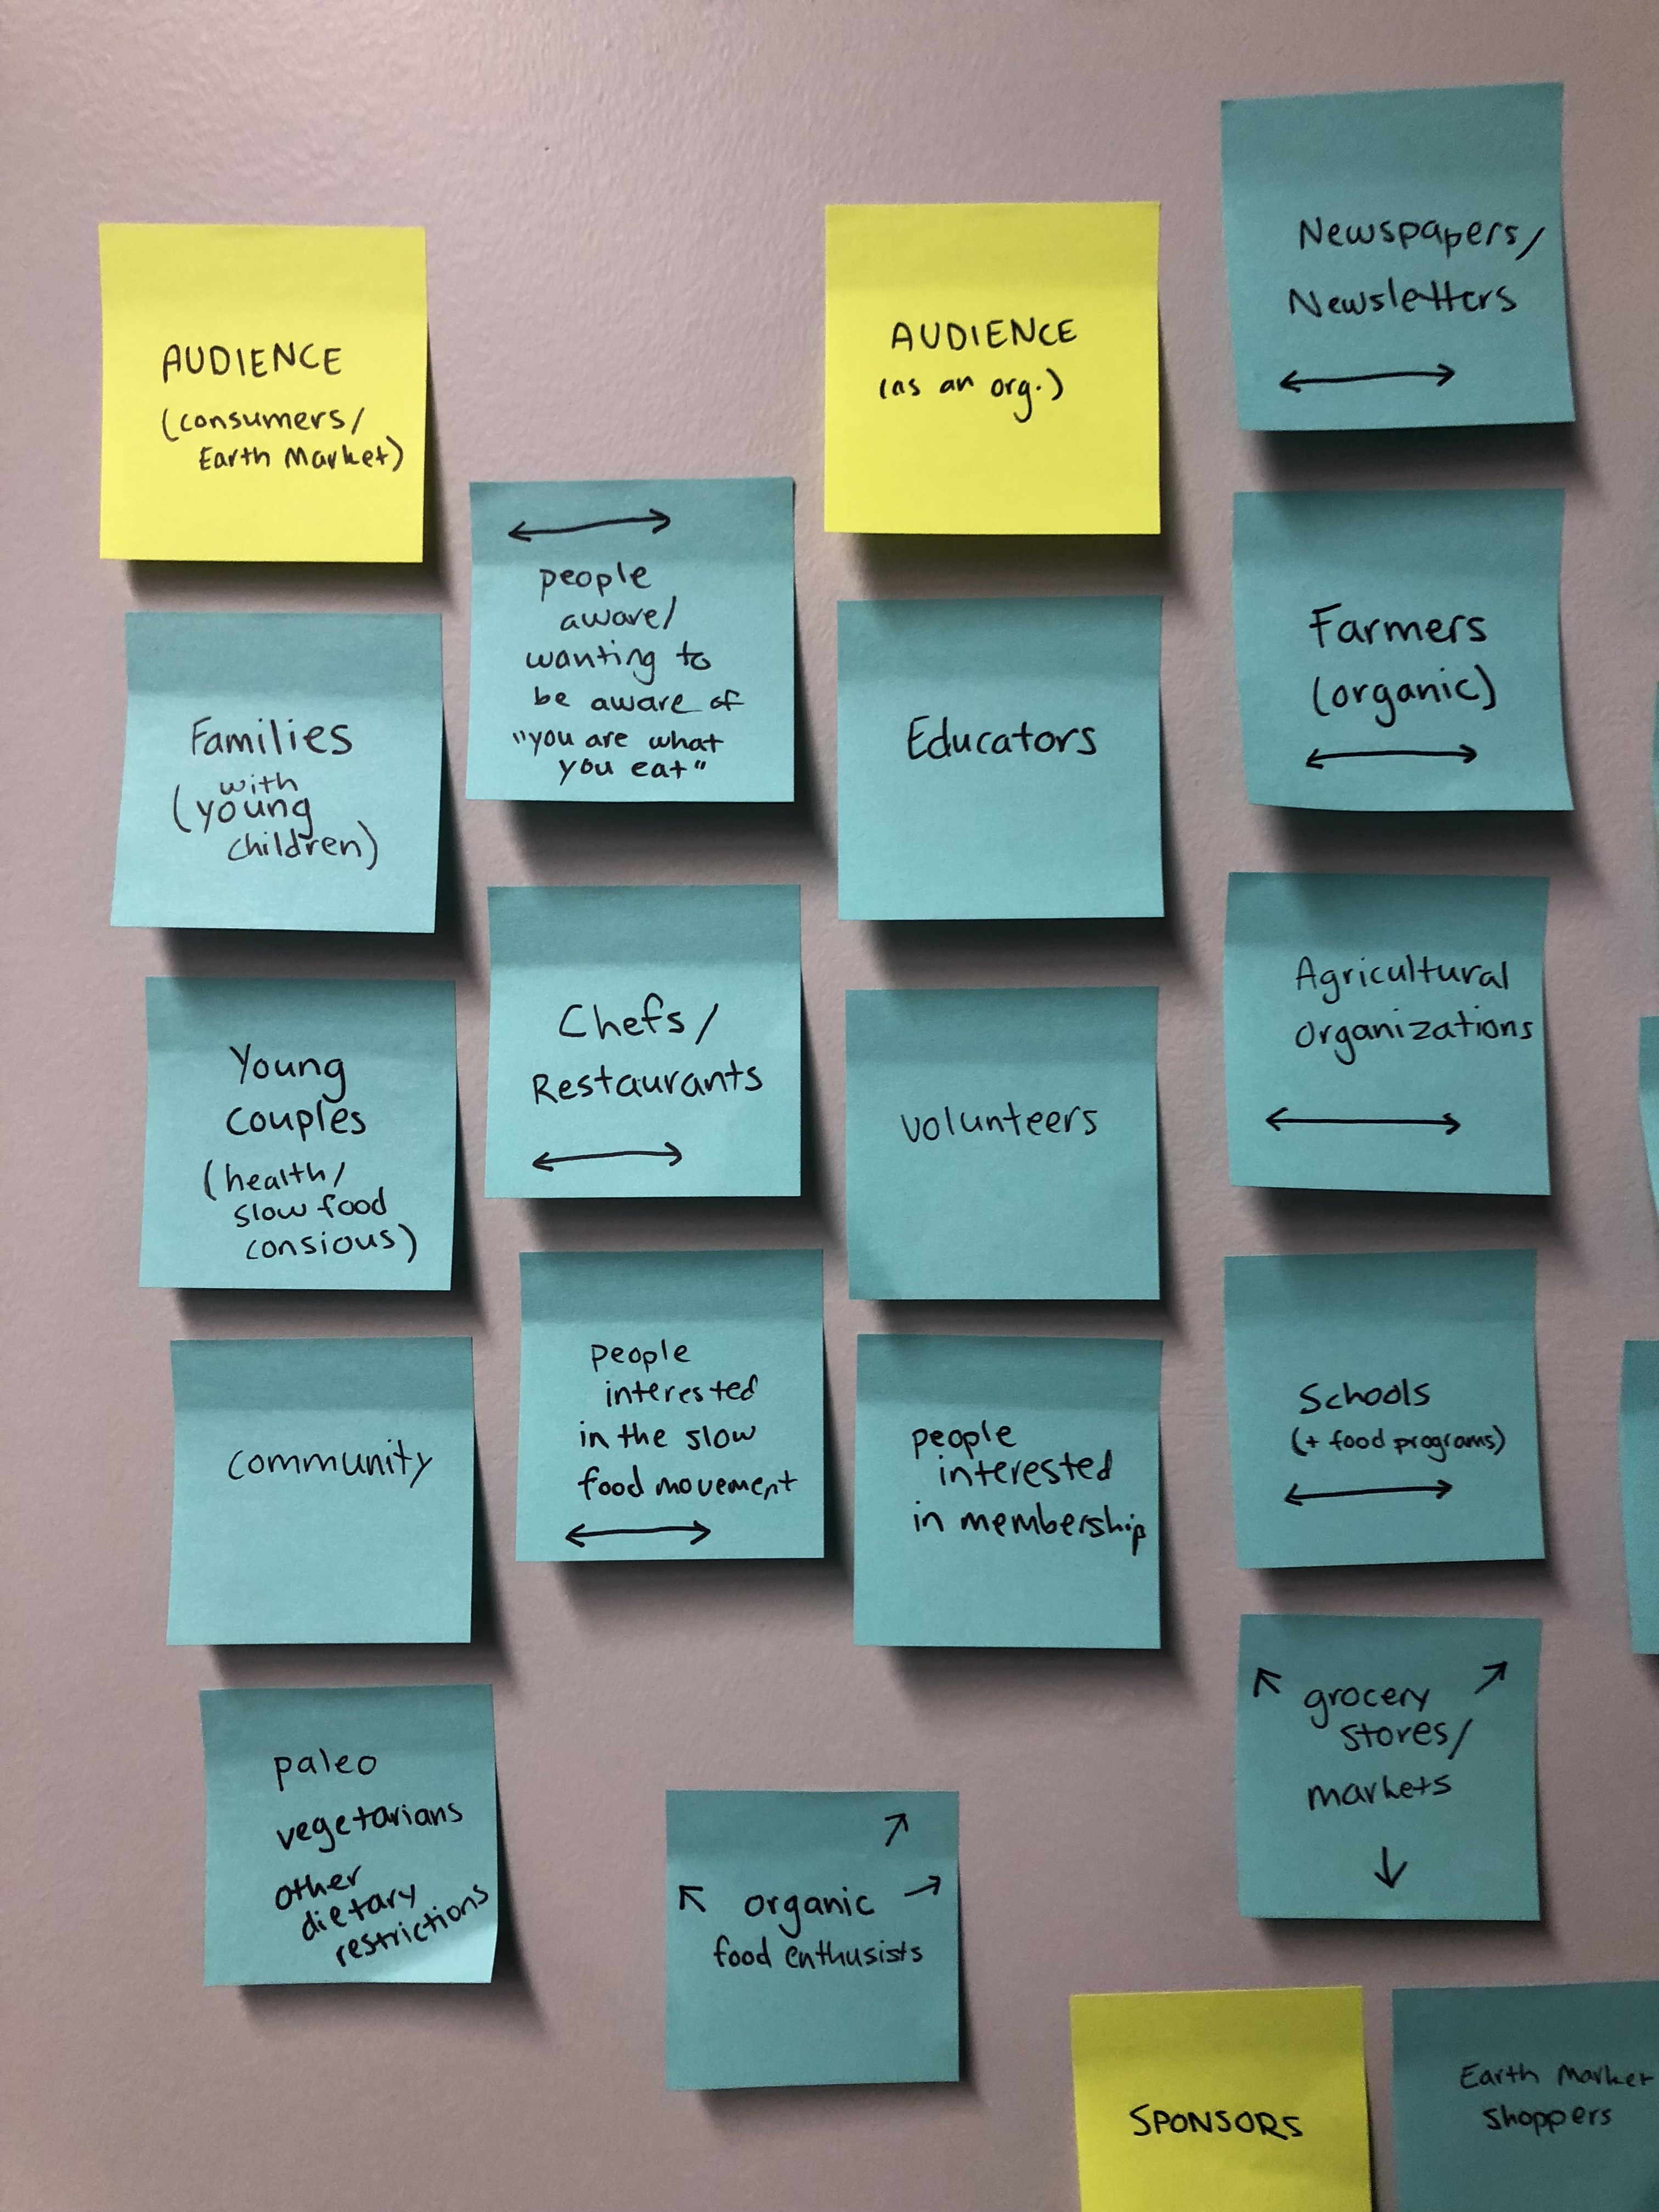 AUDIENCE
(consumers/
Earth Market)
Families
with
(young
children)
Young
couples
(health/
slow food
consious)
community
paleo
vegetarians
other
dietary
restrictions
people
aware/
wanting to
be aware of
"you are what
you eat"
Chefs/
Restaurants
people
interested
in the slow
food movement
organic
food enthusists
AUDIENCE
(as an org.)
Educators
volunteers
people
interested
in membership
Newspapers/
Newsletters
Farmers
(organic)
Agricultural
organizations
Schools
(+ food programs)
grocery
stores/
markets
SPONSORS
Earth Market
shoppers